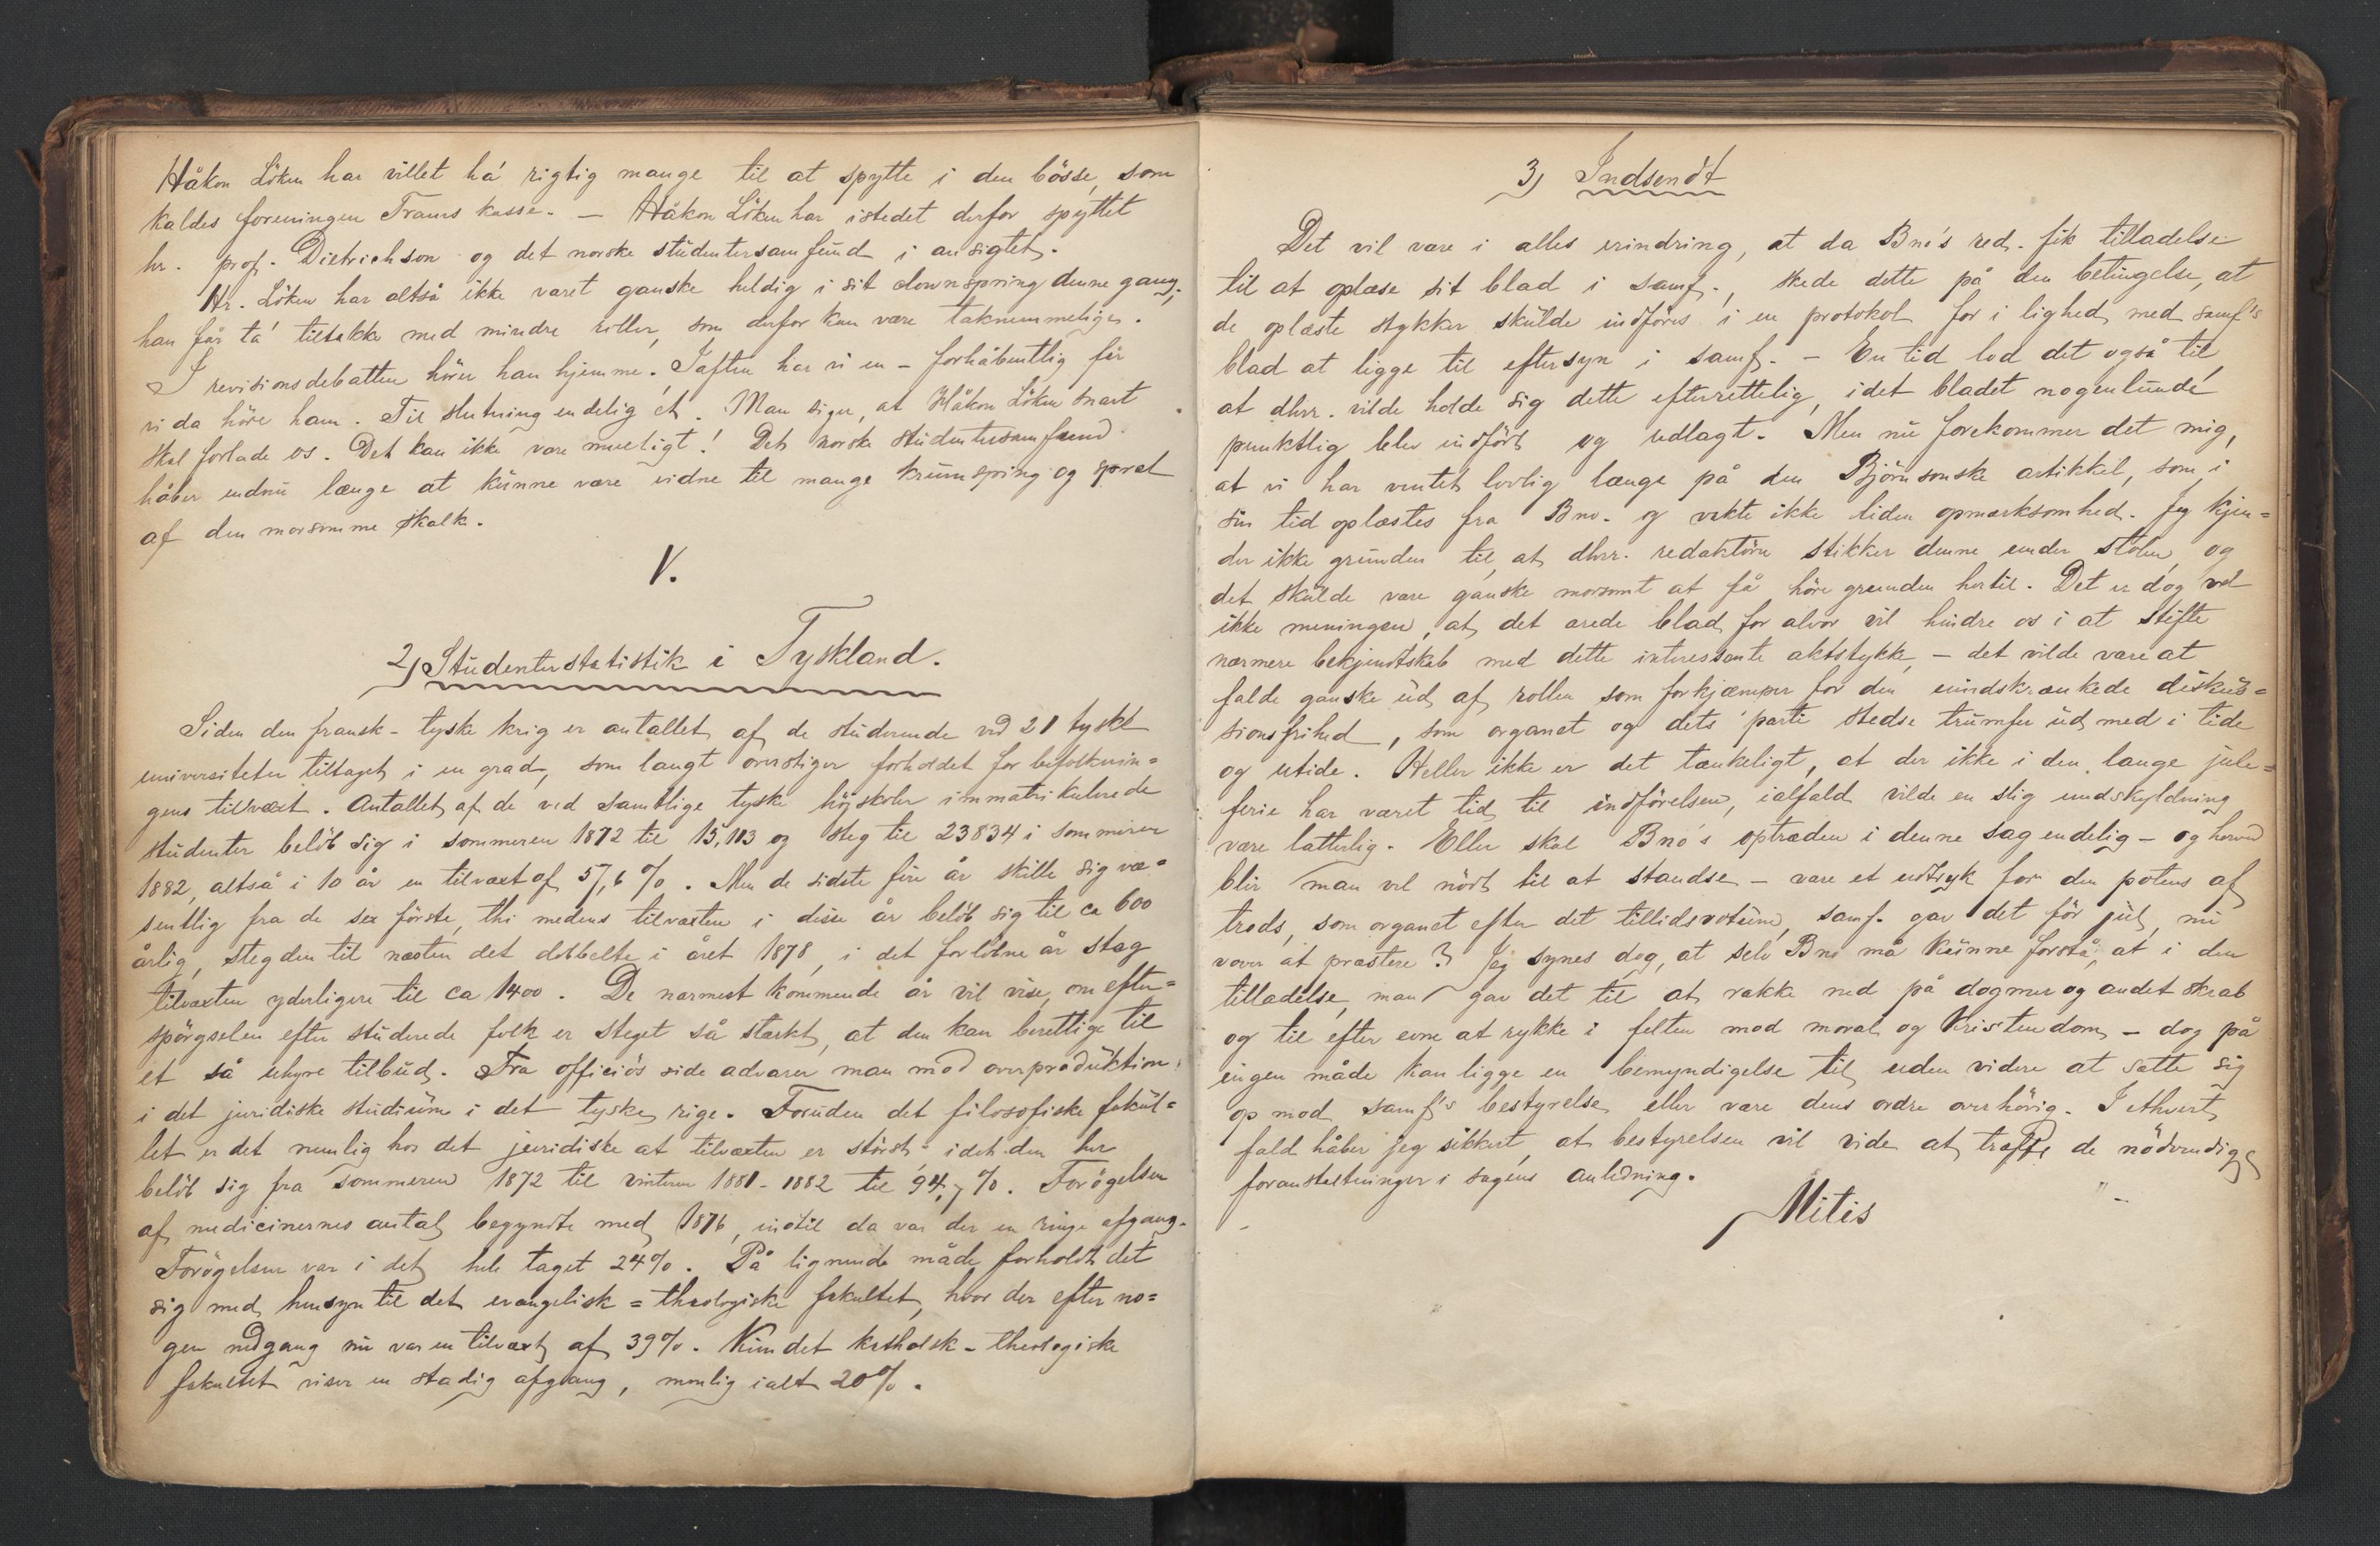 Håkon Löken har villet há rigtig mange til at spytte i den bösse, som
kaldes foreningen Frams kasse. — Håkon Löken har istedet derfor spyttet
hr. prof. Dietrichson og det norske studentersamfund i ansigtet.
Hr. Löken har altså ikke været ganske heldig i sit clownspring denne gang;
han får tá tiltakke med mindre roller, som derfor kan være taknemmelige.
I revisionsdebatten hörer han hjemme. Iaften har vi en – forhåbentlig får
vi da höre ham. Til slutning endelig ét. Man siger, at Håkon Löken snart
skal forlade os. Det kan ikke være mueligt! Det norske studentersamfund
håber endnu længe at kunne være vidne til mange krumspring og sprel
af den morsomme skalk.
V.
2) Studenterstatistik i Tyskland.
Siden den fransk-tyske krig er antallet af de studerende ved 21 tyske
universiteter tiltaget i en grad, som langt overstiger forholdet for befolknin=
gens tilvæxt. Antallet af de ved samtlige tyske höjskoler immatrikulerede
studenter belöb sig i sommeren 1872 til 15,113 og steg til 23834 i sommeren
1882, altså i 10 år en tilvæxt af 57,6 %. Men de sidste fire år skille sig væ=
sentlig fra de sex förste, thi medens tilvæxten i disse år belöb sig til ca 600
årlig, steg den til næsten det dobbelte i året 1878, i det forlöbne år steg
tilvæxten yderligere til ca 1400. De nærmest kommende år vil vise, om efter=
spörgselen efter studerede folk er steget så stærkt, at den kan berettige til
et så uhyre tilbud. Fra officiös side advarer man mod overproduktion
i det juridiske studium i det tyske rige. Foruden det filosofiske fakul=
tet er det nemlig hos det juridiske at tilvæxten er störst, idet den her
belöb sig fra sommeren 1872 til vinteren 1881-1882 til 94,7 %. Forögelsen
af medicinernes antal begyndte med 1876, indtil da var der en ringe afgang.
Forögelsen var i det hele taget 24%. På lignende måde forholdt det
sig med hensyn til det evangelisk=theologiske fakultet, hvor der efter no=
gen nedgang nu var en tilvæxt af 39%. Kun det katholsk-theologiske
fakultet viser en stadig afgang, nemlig ialt 20%.
3) Indsendt
Det vil være i alles erindring, at da Bno's red. fik tilladelse
til at oplæse sit blad i samf., skede dette på den betingelse, at
de oplæste stykker skulde indföres i en protokol for i lighed med samf's
blad at ligge til eftersyn i samf. – En tid lod det også til,
at dhrr. vilde holde sig dette efterrettelig, idet bladet nogenlunde
punktlig blev indfört og udlagt. Men nu forekommer det mig,
at vi har ventet lovlig længe på den Björnsonske artikkel, som i
sin tid oplæstes fra Bno. og vakte ikke liden opmærksomhed. Jeg kjen=
der ikke grunden til, at dhrr. redaktörer stikker denne under stolen, og
det skulde være ganske morsomt at få höre grunden hertil. Det er dog vel
ikke meningen, at det ærede blad for alvor vil hindre os i at stifte
nærmere bekjendtskab med dette interessante aktstykke, – det vilde være at
falde ganske ud af rollen som forkjæmper for den uindskrænkede diskus=
sionsfrihed, som organet og dets parti stedse trumfer ud med i tide
og utide. Heller ikke er det tænkeligt, at der ikke i den lange jule=
ferie har været tid til indförelsen, ialfald vilde en slig undskyldning
være latterlig. Eller skal Bno's optræden i denne sag endelig – og herved
blir man vel nödt til at standse – være et udtryk for den potens af
trods, som organet efter det tillidsvotum, samf. gav det för jul, nu
vover at præstere? Jeg synes dog, at selv Bno må kunne forstå, at i den
tilladelse, man gav det til at rakke ned på dogmer og andet skrab
og til efter evne at rykke i felten mod moral og Kristendom – dog på
ingen måde kan ligge en bemyndigelse til uden videre at sætte sig
op mod samf's bestyrelse eller være dens ordre overhörig. I ethvert
fald håber jeg sikkert, at bestyrelsen vil vide at træffe de nödvendige
foranstaltninger i sagens anledning.
Mitis